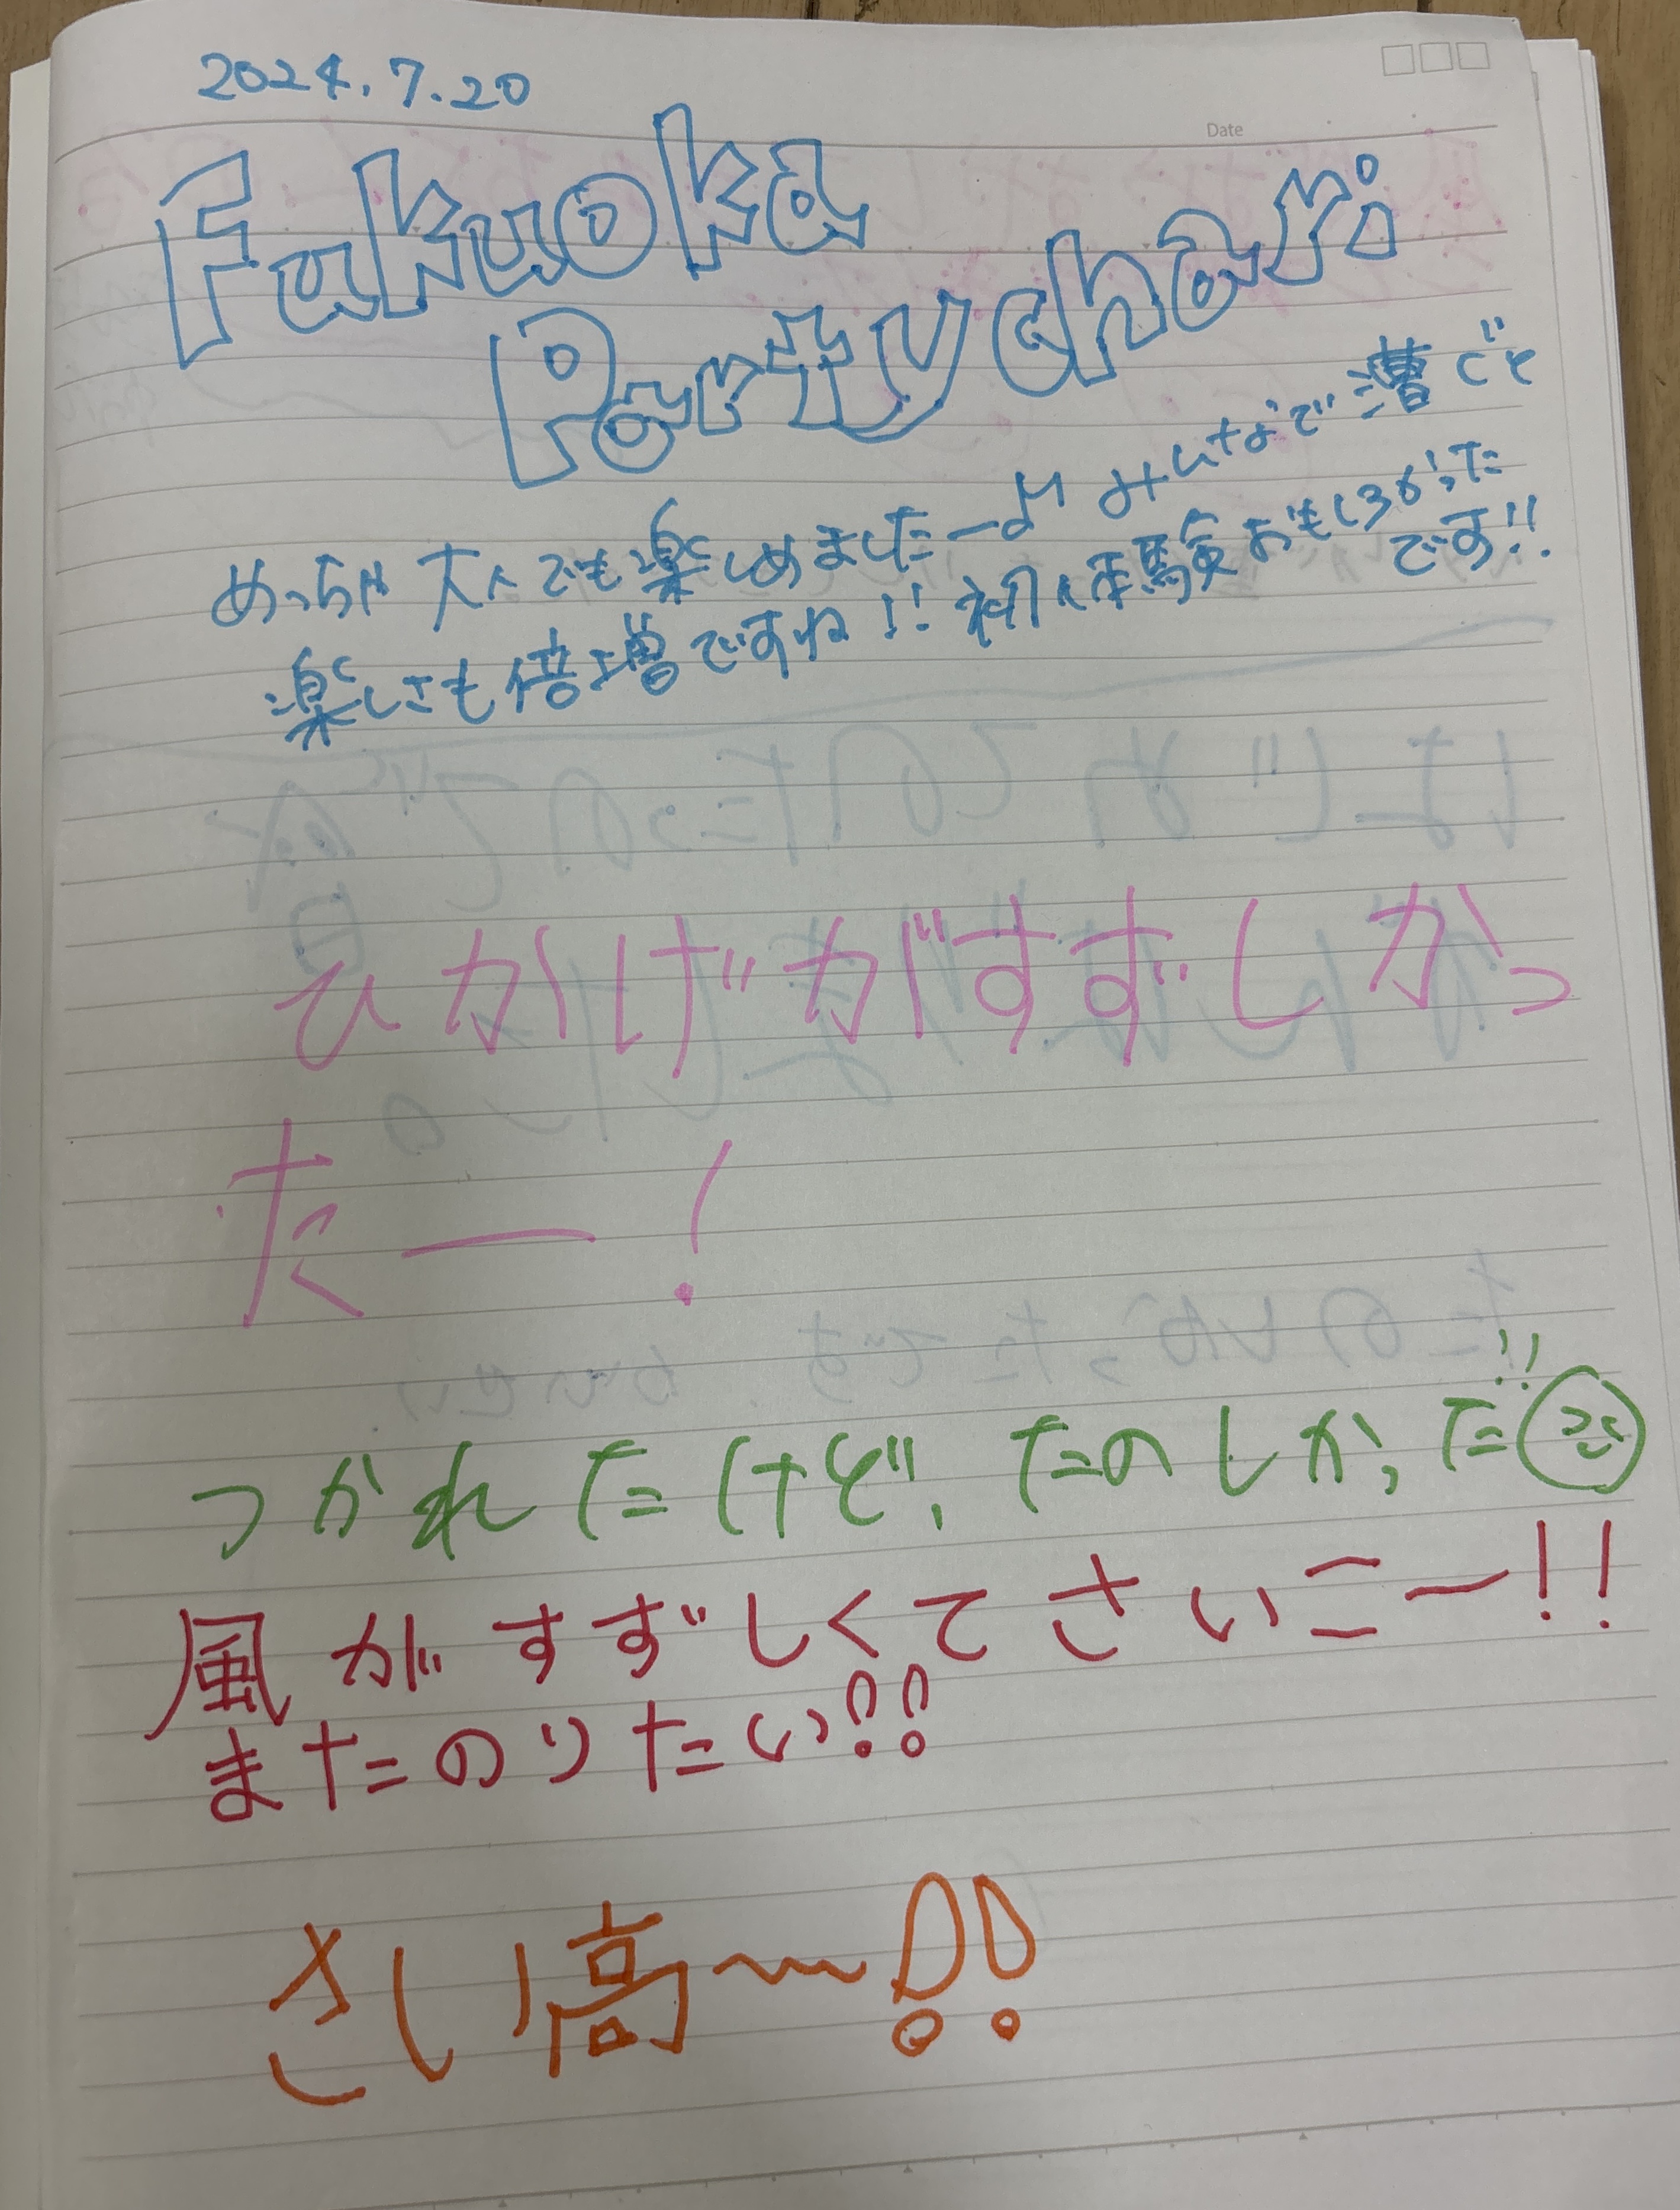 2024.7.20
Date
Fukuoka
Partychari
めっちゃ大人でも楽しめましたー♪ みんなで漕ぐと
楽しさも倍増ですね!! 初体験おもしろかった
です!!
ひかげがすずしかっ
たー!
つかれたけど、たのしかった!!
風がすずしくてさいこー!!
またのりたい!!
さい高〜!!